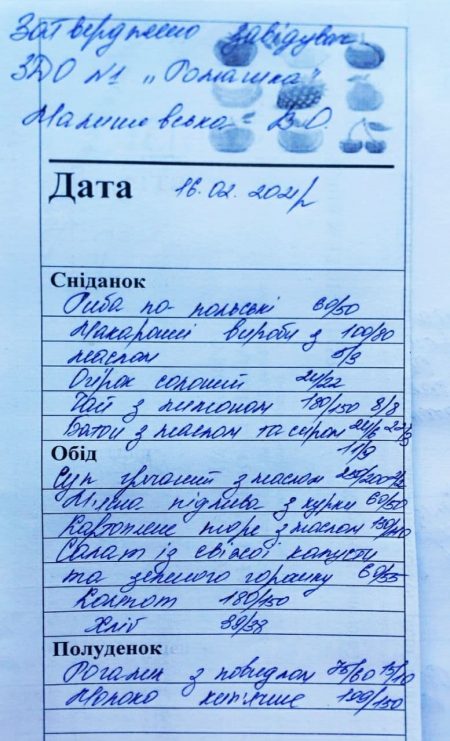 Затверджено завідувач
ЗДО №1 „Ромашка"
Малишовська В.О.
Дата 16.02.2021р
Сніданок
Риба по-польські 60/50
Макаронні вироби з 100/80
маслом 5/3
Огірок солоний 24/22
Чай з лимоном 180/150 8/8
Батон з маслом та сиром 24/6 22/3
11/9
Обід
Суп гречаний з маслом 250/200
М'ясна підлива з курки 60/50
Картопляне пюре з маслом
Салат із свіжої капусти
та зеленого горошку 60/55
Компот 180/150
Хліб
Полуденок
Рогалик з повидлом 75/60 15/10
Молоко кип'ячене /150